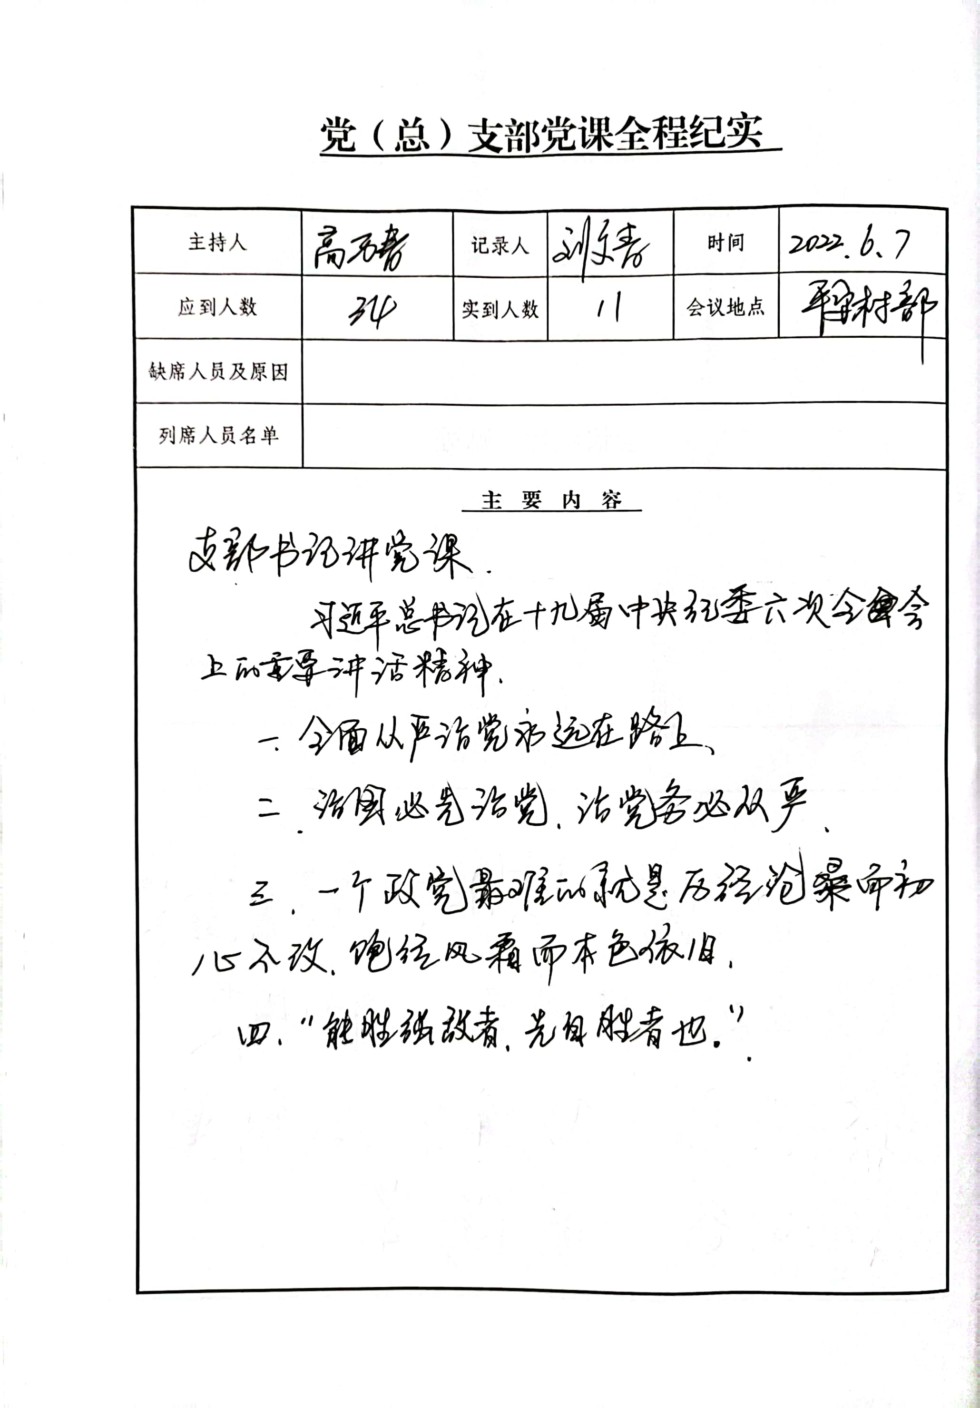 党（总）支部党课全程纪实
主持人 高 记录人 刘文 时间 2022.6.7
应到人数 34 实到人数 11 会议地点 村部
缺席人员及原因
列席人员名单
主要内容
支部书记讲党课.
习近平总书记在十九届中央纪委六次全会
上的重要讲话精神.
一、全面从严治党永远在路上、
二、治国必先治党、治党务必从严、
三、一个政党最难的就是历经沧桑而初
心不改、饱经风霜而本色依旧.
四、“能胜强敌者、先自胜者也。”.